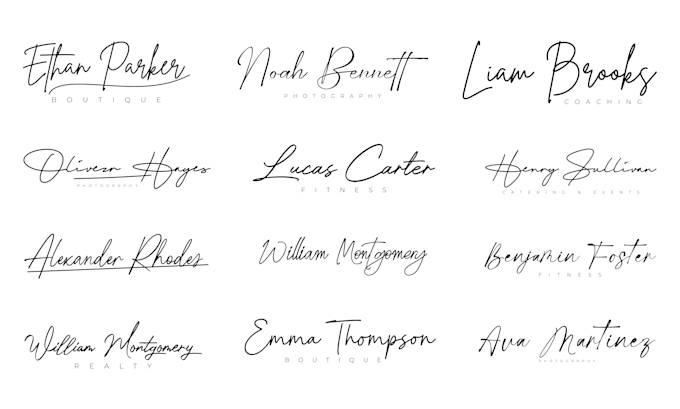 Ethan Parker
BOUTIQUE
Noah Bennett
PHOTOGRAPHY
Liam Brooks
COACHING
Oliverr Hayes
PHOTOGRAPHY
Lucas Carter
FITNESS
Henry Sullivan
CATERING & EVENTS
Alexander Rhodes
William Montgomery
Benjamin Foster
FITNESS
William Montgomery
REALTY
Emma Thompson
BOUTIQUE
Ava Martinez
PHOTOGRAPHY